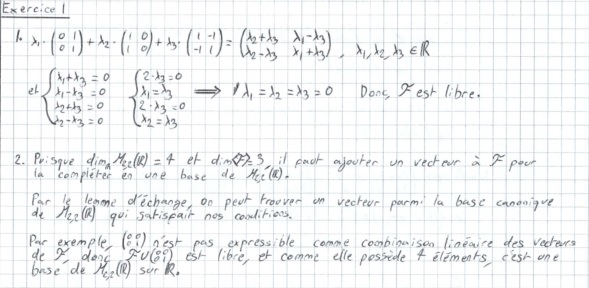 Exercice 1
1. λ₁·(0 1 / 0 1) + λ₂·(1 0 / 1 0) + λ₃·(1 -1 / -1 1) = (λ₂+λ₃ λ₁-λ₃ / λ₂-λ₃ λ₁+λ₃), λ₁,λ₂,λ₃ ∈ ℝ
et { λ₁+λ₃ = 0 { 2·λ₃=0
λ₁-λ₃ = 0 λ₁=λ₃ ⟹ λ₁ = λ₂ = λ₃ = 0 Donc, F est libre.
λ₂+λ₃ = 0 2·λ₃ = 0
λ₂-λ₃ = 0 λ₂=λ₃
2. Puisque dim M₂,₂(ℝ) = 4 et dim = 3, il faut ajouter un vecteur à F pour
la compléter en une base de M₂,₂(ℝ).
Par le lemme d'échange, on peut trouver un vecteur parmi la base canonique
de M₂,₂(ℝ) qui satisfait nos conditions.
Par exemple, (0 0 / 0 1) n'est pas expressible comme combinaison linéaire des vecteurs
de F, donc F∪(0 0 / 0 1) est libre, et comme elle possède 4 éléments, c'est une
base de M₂,₂(ℝ) sur ℝ.